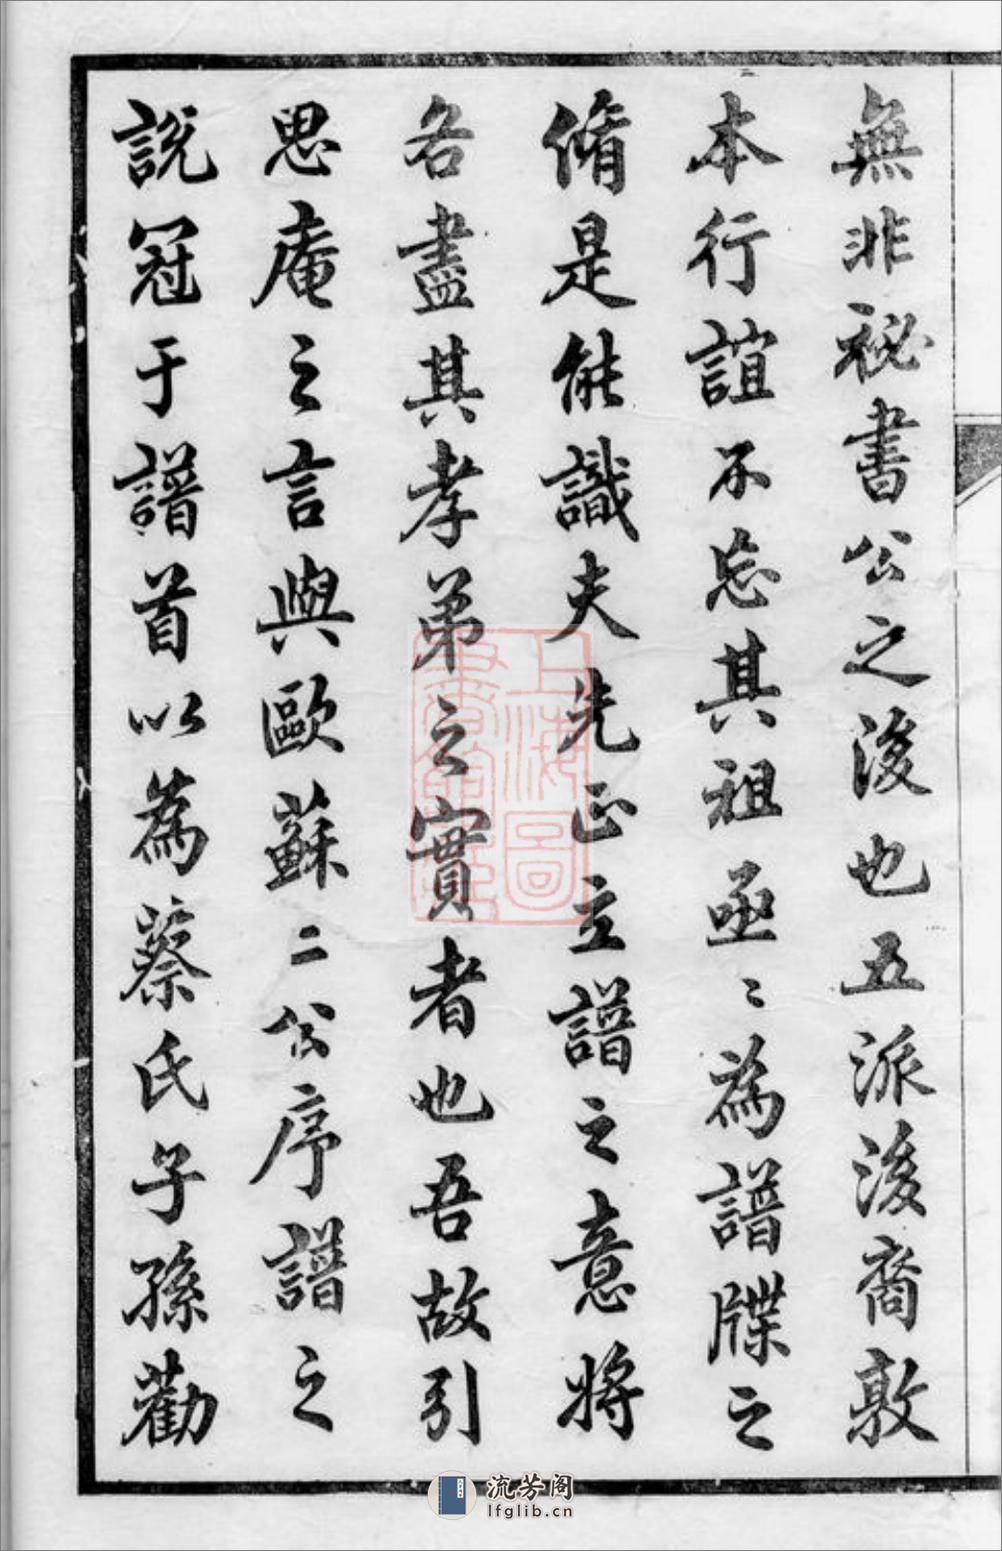 無非祕書公之後也五派後裔敦
本行誼不忘其祖亟〻為譜牒之
脩是能識夫先正立譜之意將
各盡其孝弟之實者也吾故引
思庵之言與歐蘇二公序譜之
說冠于譜首以為蔡氏子孫勸
上海圖
書館藏
流芳阁
lfglib.cn